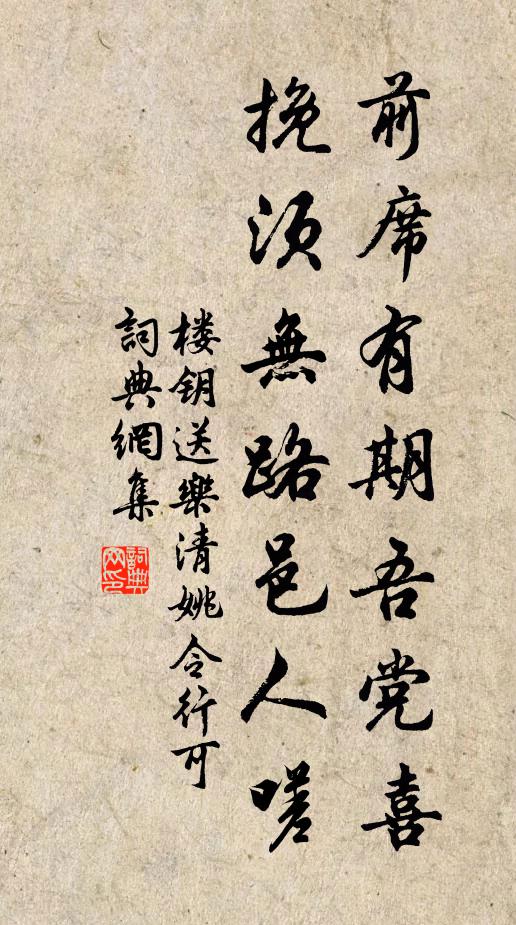 前席有期吾党喜
挽须無路邑人嗟
楼钥送樂清姚令行可
詞典網集
詞典网印